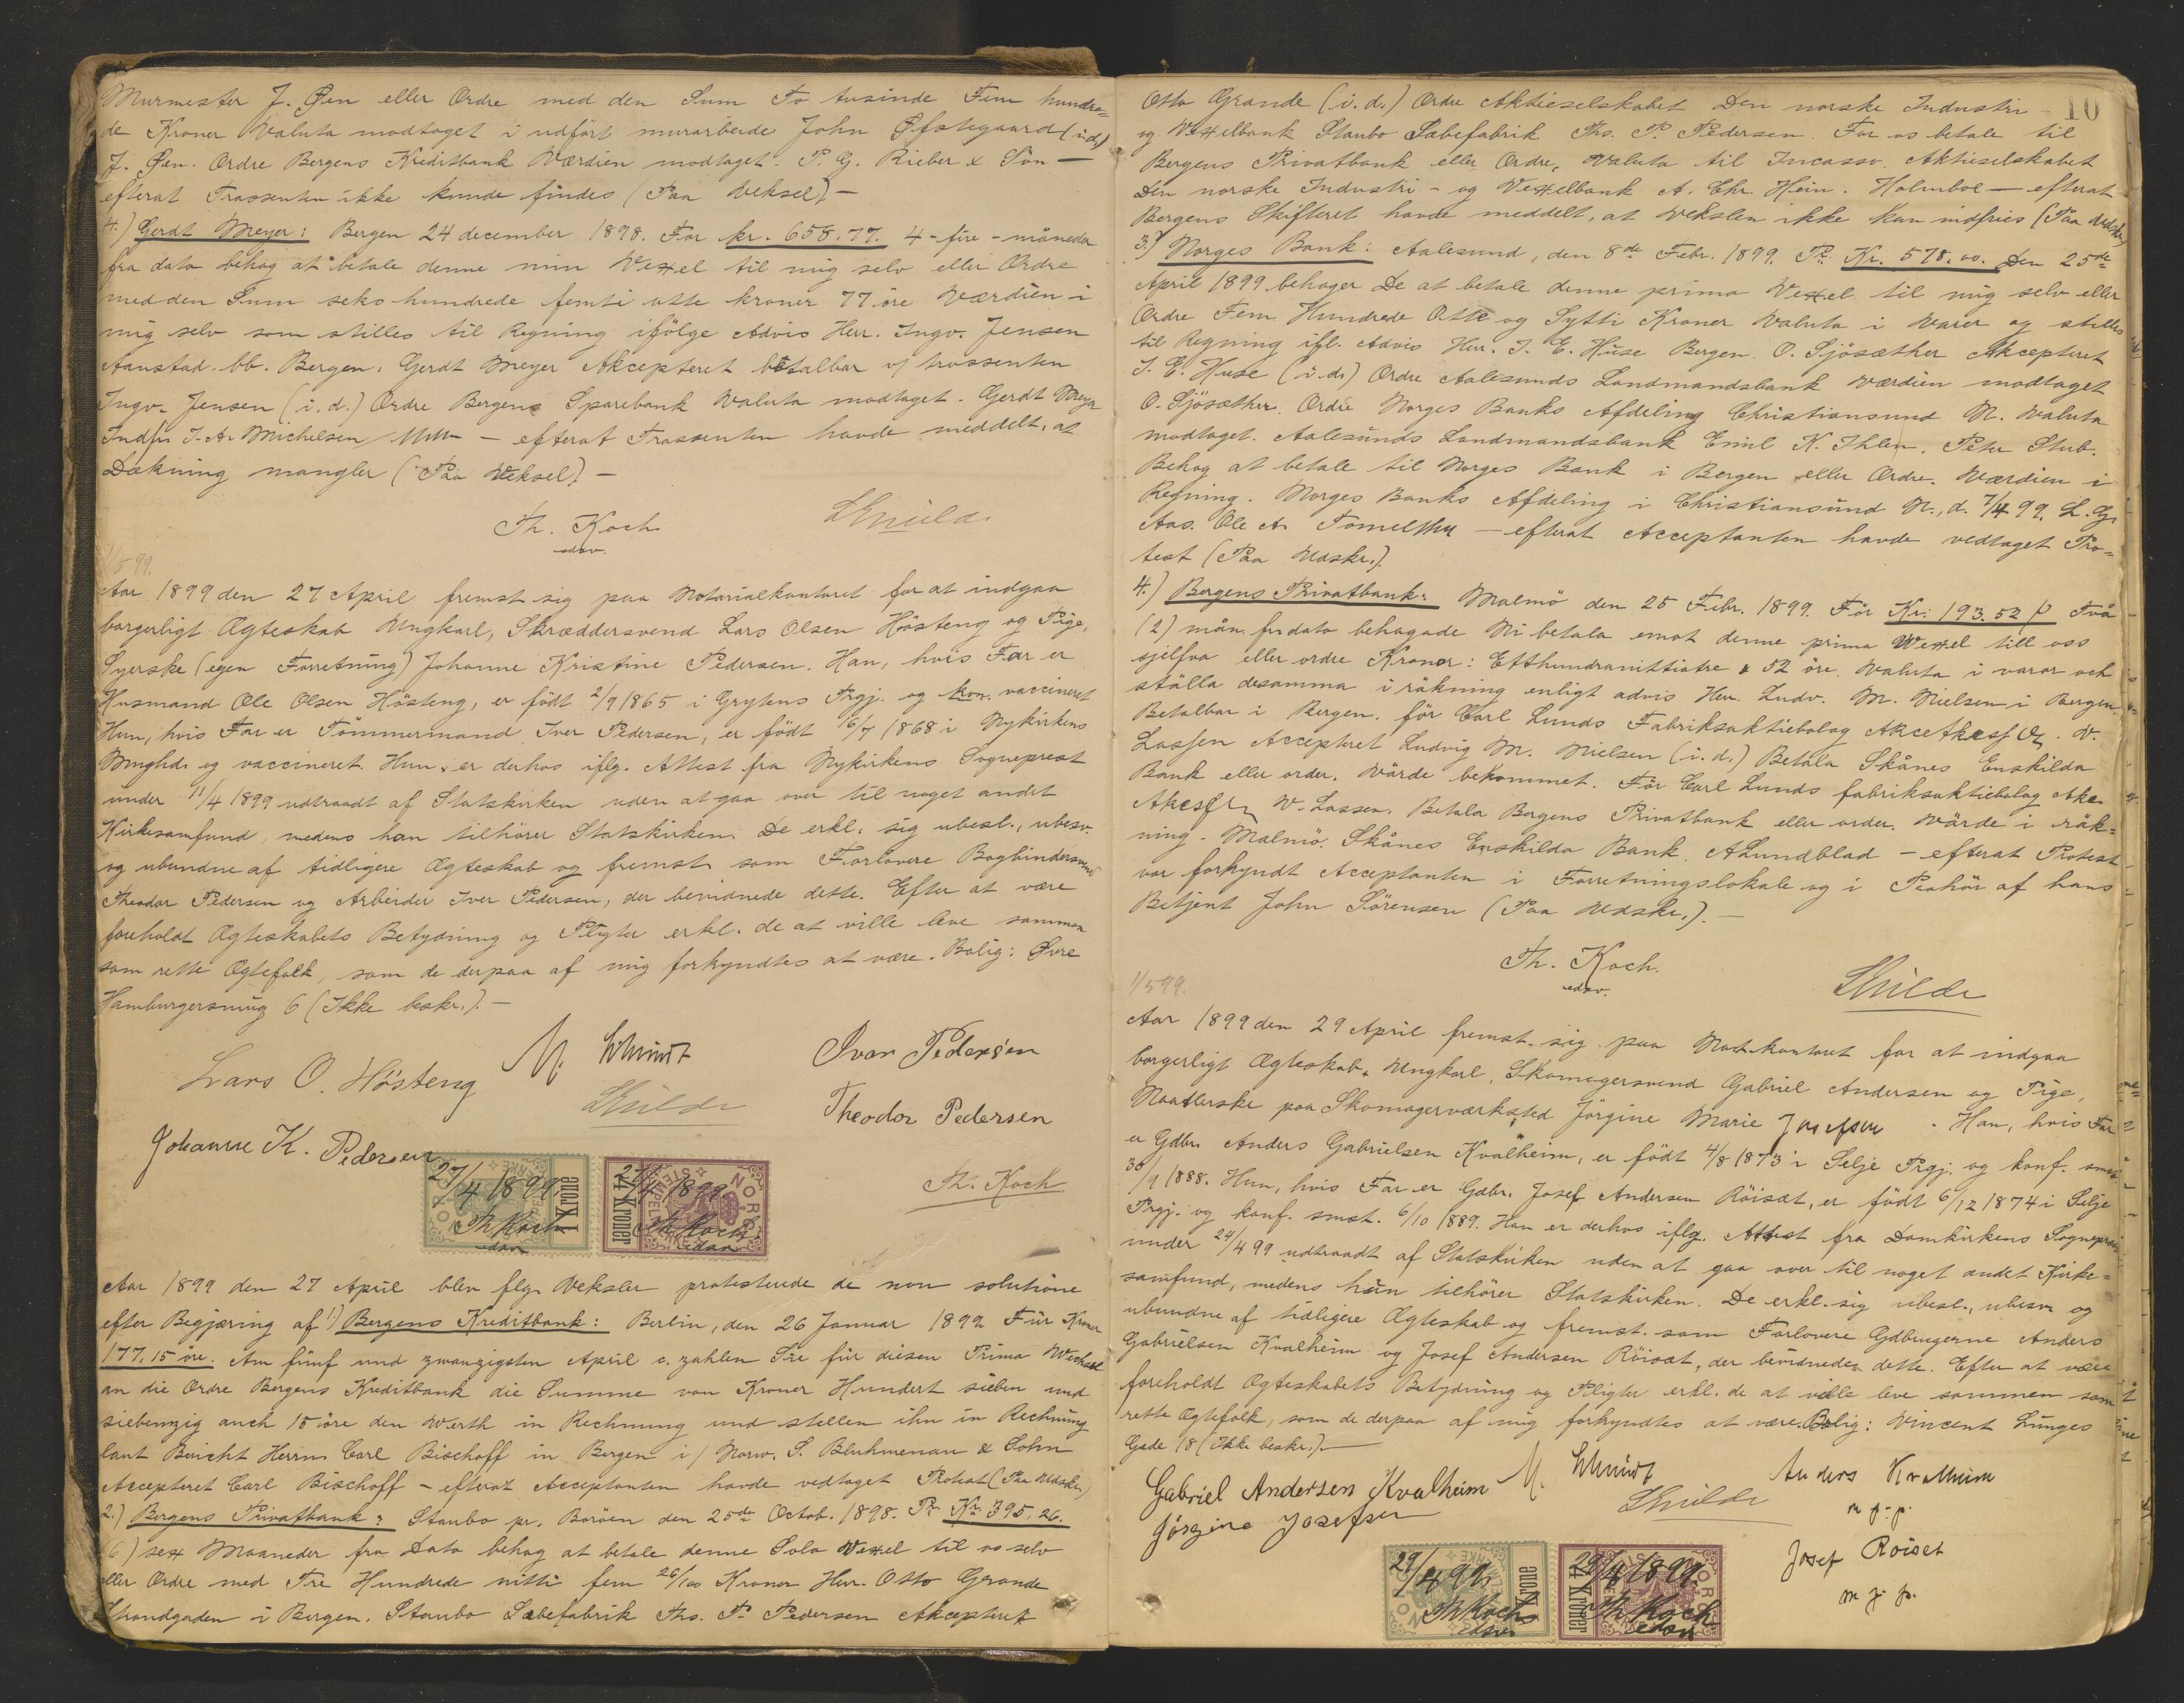 Murmester J. Øen eller Ordre med den Sum To tusinde Fem hundre=
de Kroner Valuta modtaget i udført murarbeide John Øfstegaard (i.d.)
J. Øen. Ordre Bergens Kreditbank Værdien modtaget. P. G. Rieber & Sön —
efterat Trassenten ikke kunde findes (Paa Veksel) —
4.) Gerdt Meyer: Bergen 24 december 1898. For kr. 658.77. 4 - fire - måneder
fra dato behag at betale denne min Vexel til mig selv eller Ordre
med den Sum seks hundrede femti otte kroner 77 öre Værdien i
mig selv som stilles til Regning ifölge Advis Herr. Ingv. Jensen
Aanstad. bb. Bergen. Gerdt Meyer Akcepteret betalbar v/ trassenten
Ingv. Jensen (i.d.) Ordre Bergens Sparebank Valuta modtaget. Gerdt Meyer
Indfri J. A. Michelsen — efterat Trassenten havde meddelt, at
Dækning mangler (Paa Veksel). —
Th. Koch
edsv.
1/5 99.
Aar 1899 den 27 April fremst. sig paa Notarialkontoret for at indgaa
borgerligt Ægteskab Ungkarl, Skræddersvend Lars Olsen Hösteng og Pige,
Syerske (egen Forretning) Johanne Kristine Pedersen. Han, hvis Far er
Husmand Ole Olsen Hösteng, er födt 2/9 1865 i Grytens Prgj. og kon. vaccineret
Hun, hvis Far er Tömmermand Iver Pedersen, er födt 16/7 1868 i Nykirkens
Mnghd. og vaccineret. Hun er derhos iflg. Attest fra Nykirkens Sogneprest
under 11/4 1899 udtraadt af Statskirken uden at gaa over til noget andet
Kirkesamfund, medens han tilhörer Statskirken. De erkl. sig ubesl., ubesv.
og ubundne af tidligere Ægteskab og fremst. som Forlovere Bogbindersvend
Theodor Pedersen og Arbeider Iver Pedersen, der bevidnede dette. Efter at være
foreholdt Ægteskabets Betydning og Pligter erkl. de at ville leve sammen
som rette Ægtefolk, som de derpaa af mig forkyndtes at være. Bolig: Øvre
Hamburgersmug 6 (Ikke beskr.). —
Lars O. Hösteng
Ivar Pedersen
Theodor Pedersen
Johanne K. Pedersen
Th. Koch
27/4 1899
Th Koch
edsv
1 Krone
27/4 1899
Th Koch
edsv
4 Kroner
Aar 1899 den 27 April blev flg. Veksler protesterede de non solutione
efter Begjæring af 1) Bergens Kreditbank: Berlin, den 26 Januar 1899. Für Kroner
177.15 öre. Am fünf und zwanzigsten April c. zahlen Sie für diesen Prima Wechsel
an die Ordre Bergens Kreditbank die Summe von Kroner Hundert sieben und
siebenzig auch 15 öre den Werth in Rechnung und stellen ihn in Rechnung
laut Bericht Herrn Carl Bischoff in Bergen i/ Norw. S. Bluhmenau & Sohn
Accepteret Carl Bischoff — efterat Acceptanten havde vedtaget Protest (Paa Udskr.)
2.) Bergens Privatbank: Staubo pr. Boröen den 25de Octob. 1898. Pr Kr. 395.26.
(6) sex Maaneder fra Dato behag at betale denne Sola Vexel til os selv
eller Ordre med Tre Hundrede nitti fem 26/100 Kroner Herr. Otto Grande
Strandgaden i Bergen. Staubo Sæbefabrik Ths. P. Pedersen Akcepteret
10
Otto Grande (i.d.) Ordre Aktieselskabet Den norske Industri-
og Vexelbank Staubo Sæbefabrik Ths. P. Pedersen For os betale til
Bergens Privatbank eller Ordre, Valuta til Incasso. Aktieselskabet
Den norske Industri- og Vexelbank A. Chr. Hein. Holmboe — efterat
Bergens Skifteret havde meddelt, at Vekslen ikke kan indfries (Paa Udskr.)
3.) Norges Bank: Aalesund, den 8de Febr. 1899. Pr. Kr. 578.00. Den 25de
April 1899 behager De at betale denne prima Vexel til mig selv eller
Ordre Fem Hundrede Otte og Sytti Kroner Valuta i Varer og stilles
til Regning ifl. Advis Herr. J. E. Huse Bergen. O. Sjösæther Akcepteret
J. E. Huse (i.d.) Ordre Aalesunds Landmandsbank Værdien modtaget
O. Sjösæther. Ordre Norges Banks Afdeling Christiansund N. Valuta
modtaget. Aalesunds Landmandsbank Emil K. Ihlen. Peter Stub.
Behag at betale til Norges Bank i Bergen eller Ordre. Værdien i
Regning. Norges Banks Afdeling i Christiansund N., d. 7/4 99. L. G.
Aas. Ole A. — efterat Acceptanten havde vedtaget Pro=
test (Paa Udskr.)
4.) Bergens Privatbank: Malmö den 25 Febr. 1899. För Kr: 193.52 p Två
(2) mån. fr. dato behagade Ni betala emot denne prima Wexel till oss
sjelfva eller ordre Kronor: Etthundranittiotre & 52 öre. Valuta i varor och
ställa desamma i räkning enligt advis Herr. Ludv. M. Nielsen i Bergen.
Betalbar i Bergen. för Carl Lunds Fabriksaktiebolag V.
Lassen Accepteret Ludvig M. Nielsen (i.d.) Betala Skånes Enskilda
Bank eller order. Värde bekommet. För Carl Lunds fabriksaktiebolag
W. Lassen. Betala Bergens Privatbank eller order. Värde i räk=
ning. Malmö. Skånes Enskilda Bank. A Lundblad — efterat Protest
var forkyndt Acceptanten i Forretningslokale og i Paahör af hans
Betjent John Sörensen (Paa Udskr.). —
Th. Koch.
edsv.
1/5 99.
Aar 1899 den 29 April fremst. sig paa Not. kontoret for at indgaa
borgerligt Ægteskab Ungkarl, Skomagersvend Gabriel Andersen og Pige,
Naatlerske paa Skomagerværksted Jörgine Marie Josefsen. Han, hvis Far
er Gdbr. Anders Gabrielsen Kvalheim, er födt 4/8 1873 i Selje Prgj. og konf. smst.
30/9 1888. Hun, hvis Far er Gdbr. Josef Andersen Röisæt, er födt 6/12 1874 i Selje
Prgj. og konf. smst. 6/10 1889. Han er derhos iflg. Attest fra Domkirkens Sogneprest
under 24/4 99 udtraadt af Statskirken uden at gaa over til noget andet Kirke=
samfund, medens hun tilhörer Statskirken. De erkl. sig ubesl., ubesv. og
ubundne af tidligere Ægteskab og fremst. som Forlovere Gdbrugerne Anders
Gabrielsen Kvalheim og Josef Andersen Röisæt, der bevidneder dette. Efter at være
foreholdt Ægteskabets Betydning og Pligter erkl. de at ville leve sammen som
rette Ægtefolk, som de derpaa af mig forkyndtes at være. Bolig: Vincent Lunges
Gade 18 (Ikke beskr.). —
Gabriel Andersen Kvalheim
Jörgine Josefsen
Anders Kvalheim
m. p. p.
Josef Röiset
m. p. p.
29/4 99.
Th Koch
edsv
1 Krone
29/4 1899.
Th Koch
edsv
4 Kroner